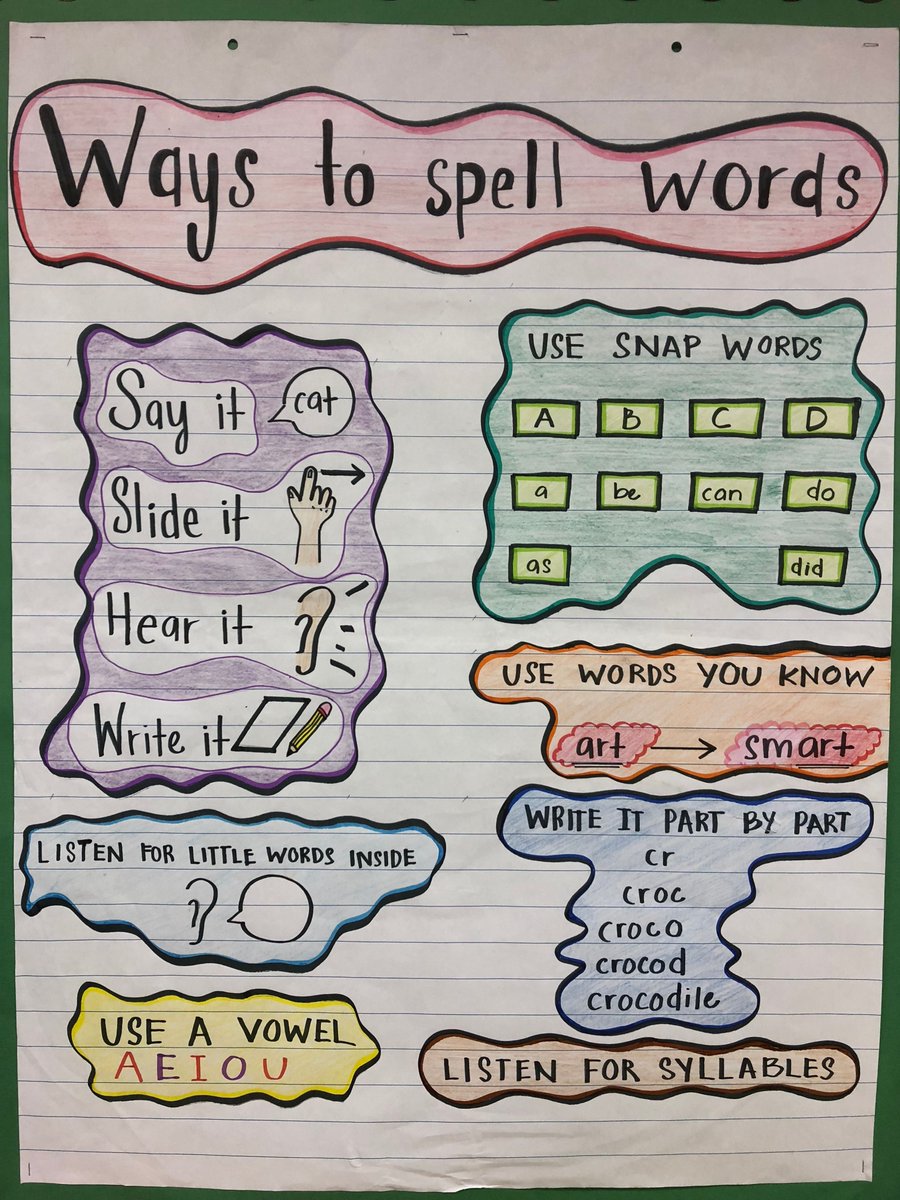 Ways to spell words
Say it
cat
Slide it
Hear it
Write it
USE SNAP WORDS
A B C D
a be can do
as did
USE WORDS YOU KNOW
art → smart
LISTEN FOR LITTLE WORDS INSIDE
WRITE IT PART BY PART
cr
croc
croco
crocod
crocodile
USE A VOWEL
A E I O U
LISTEN FOR SYLLABLES